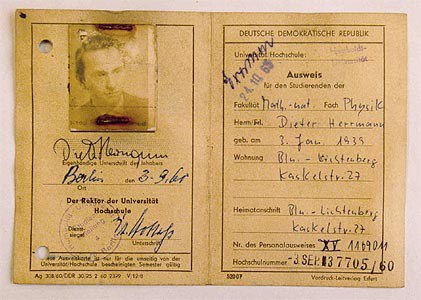 Eigenhändige Unterschrift des Inhabers
Berlin den 3.9.60
Ort
Der Rektor der Universität
Hochschule
Dienst-
siegel
Unterschrift
Diese Ausweiskarte ist nur für das einzelne von der
Universität/Hochschule bescheinigten Semester gültig
Ag 308/60/DDR
DEUTSCHE DEMOKRATISCHE REPUBLIK
Universität/Hochschule:
24.10.60
Ausweis
für den Studierenden der
Fakultät Math.-nat. Fach Physik
Herrn/Frl. Dieter Herrmann
geb. am 3. Jan. 1939
Wohnung Bln.-Lichtenberg
Kaskelstr. 27
Heimatanschrift Bln.-Lichtenberg
Kaskelstr. 27
Nr. des Personalausweises XV 1109011
Hochschulnummer -3. SEP. 37705/60
Vordruck-Leitverlag Erfurt